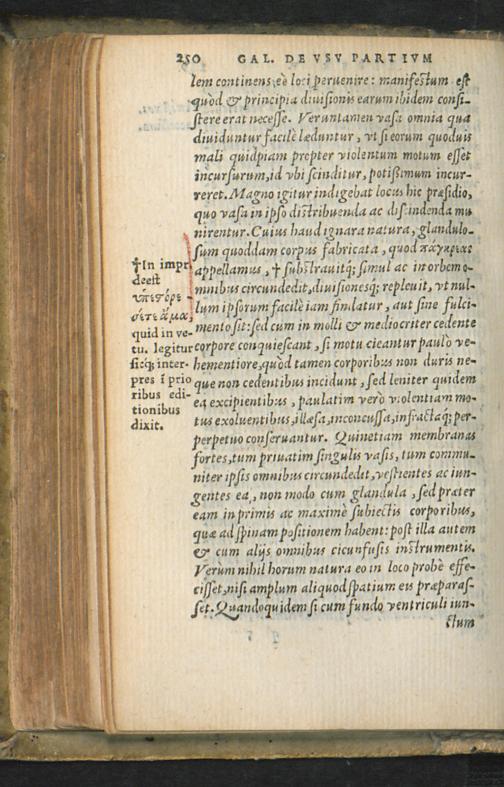 250 GAL. DE VSV PARTIVM
lem continens, eè loci peruenire: manifestum est
quòd & principia diuisionis earum ibidem consi-
stere erat necesse. Veruntamen vasa omnia qua
diuiduntur facilè læduntur, vt si eorum quoduis
mali quidpiam propter violentum motum esset
incursurum, id vbi scinditur, potißimum incur-
reret. Magno igitur indigebat locus hic præsidio,
quo vasa in ipso distribuenda ac discindenda mu
nirentur. Cuius haud ignara natura, glandulo-
sum quoddam corpus fabricata, quod πάγκρεας
appellamus, † substrauitq́; simul ac in orbem o-
mnibus circundedit, diuisionesq; repleuit, vt nul-
lum ipsorum facilè iam findatur, aut sine fulci-
mento sit: sed cum in molli & mediocriter cedente
corpore conquiescant, si motu cieantur paulò ve-
hementiore, quòd tamen corporibus non duris ne-
que non cedentibus incidunt, sed leniter quidem
ea excipientibus, paulatim verò violentiam mo-
tus exoluentibus, illæsa, inconcussa, infractaq́; per-
perpetuo conseruantur. Quinetiam membranas
fortes, tum priuatim singulis vasis, tum commu-
niter ipsis omnibus circundedit, vestientes ac iun-
gentes ea, non modo cum glandula, sed præter
eam inprimis ac maximè subiectis corporibus,
quæ ad spinam positionem habent: post illa autem
& cum alijs omnibus cicunfusis instrumentis.
Verùm nihil horum natura eo in loco probè effe-
cisset, nisi amplum aliquod spatium eis præparas-
set. Quandoquidem si cum fundo ventriculi iun-
ctum
†In impr
deest
ὑπεστόρε-
σέτε ἅμα,
quid in ve-
tu. legitur
sicq; inter-
pres ī prio
ribus edi-
tionibus
dixit.